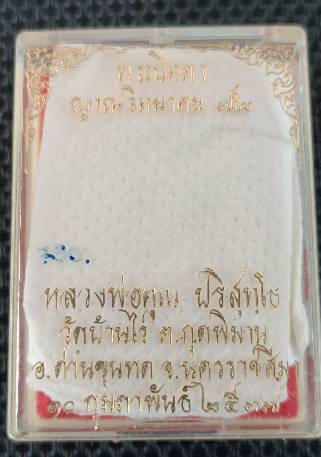 พระปิดตา
ญาณวิทยาคม ๗๒
หลวงพ่อคูณ ปริสุทฺโธ
วัดบ้านไร่ ต.กุดพิมาน
อ.ด่านขุนทด จ.นครราชสีมา
๑๐ กุมภาพันธ์ ๒๕๓๗